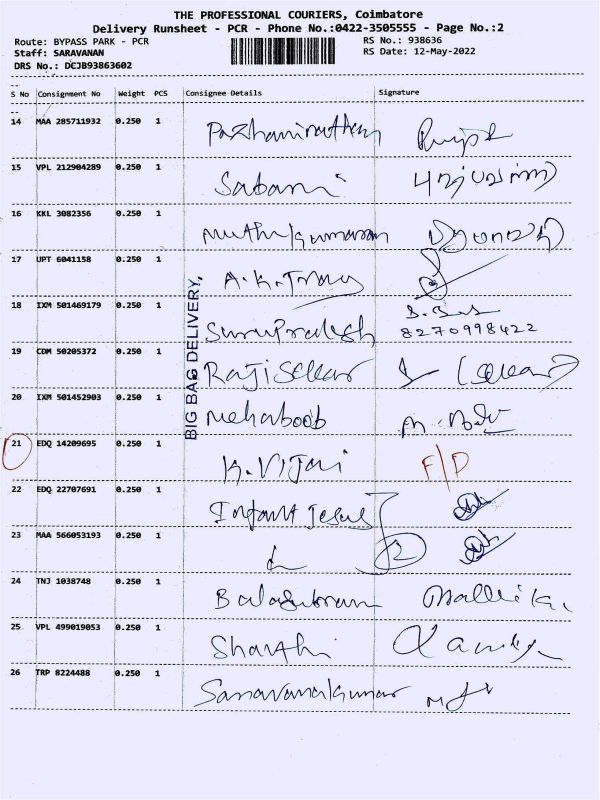 THE PROFESSIONAL COURIERS, Coimbatore
Delivery Runsheet - PCR - Phone No.:0422-3505555 - Page No.:2
Route: BYPASS PARK - PCR RS No.: 938636
Staff: SARAVANAN RS Date: 12-May-2022
DRS No.: DCJB93863602
S No Consignment No Weight PCS Consignee Details Signature
14 MAA 285711932 0.250 1
15 VPL 212904289 0.250 1 Sabani
16 KKL 3082356 0.250 1 Muthukumaran
17 UPT 6041158 0.250 1
18 IXM 501469179 0.250 1 SuryaPrakash
8270998422
19 CDM 50205372 0.250 1 Rajisekar
20 IXM 501452903 0.250 1 Mehaboob
BIG BAG DELIVERY,
21 EDQ 14209695 0.250 1 K. Vijai F/D
22 EDQ 22707691 0.250 1 Infant Jesus
23 MAA 566053193 0.250 1 2
24 TNJ 1038748 0.250 1 Balasubram Mallika
25 VPL 499019053 0.250 1 Sharthi
26 TRP 8224488 0.250 1 Saravanakumar